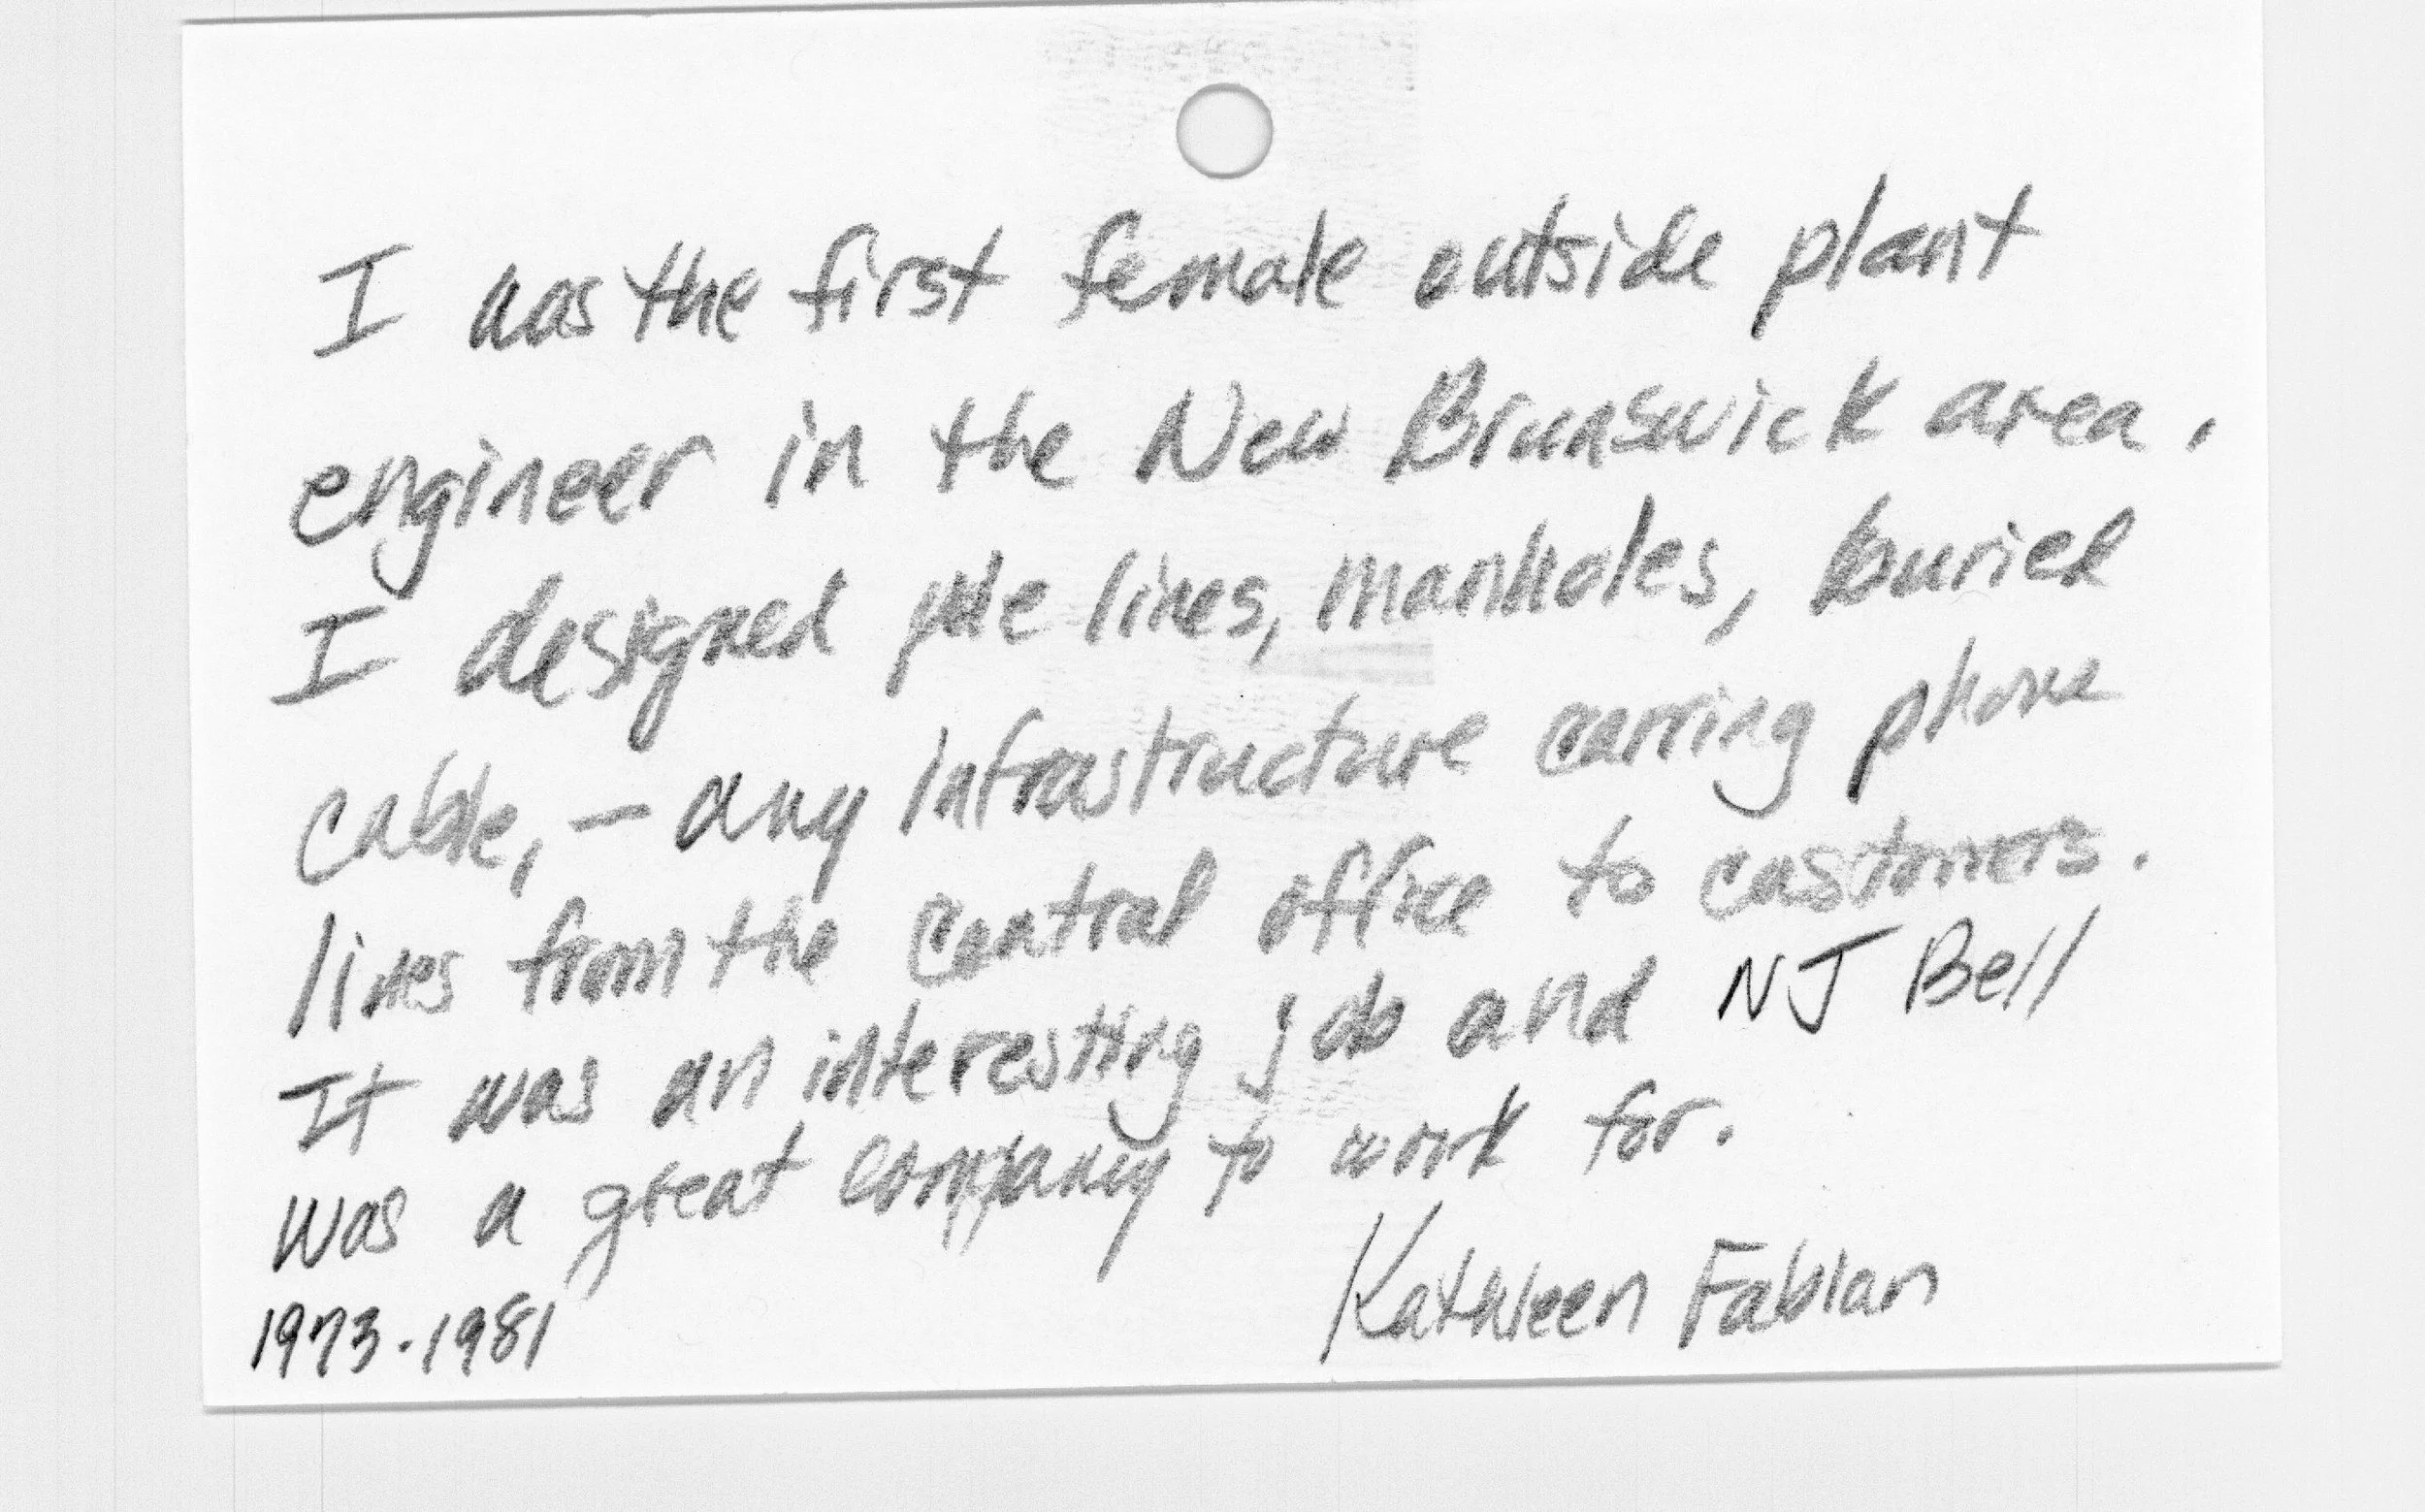 I was the first female outside plant
engineer in the New Brunswick area.
I designed pole lines, manholes, buried
cable, - any infrastructure carring phone
lines from the central office to customers.
It was an interesting job and NJ Bell
was a great company to work for.
Kathleen Fabian
1973-1981